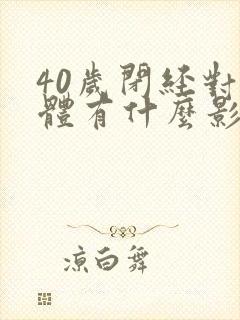 40歲閉經對
體有什麼影
涼白舞